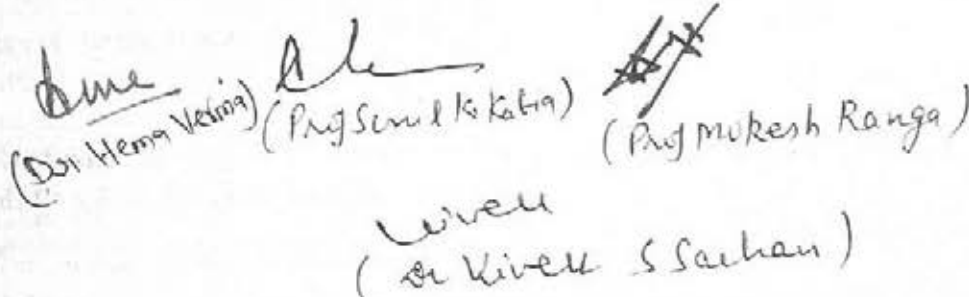 (Dr. Hema Verma) (Prof Sunil K. Kabia) (Prof Mukesh Ranga)
Vivek
(Dr Vivek S Sachan)